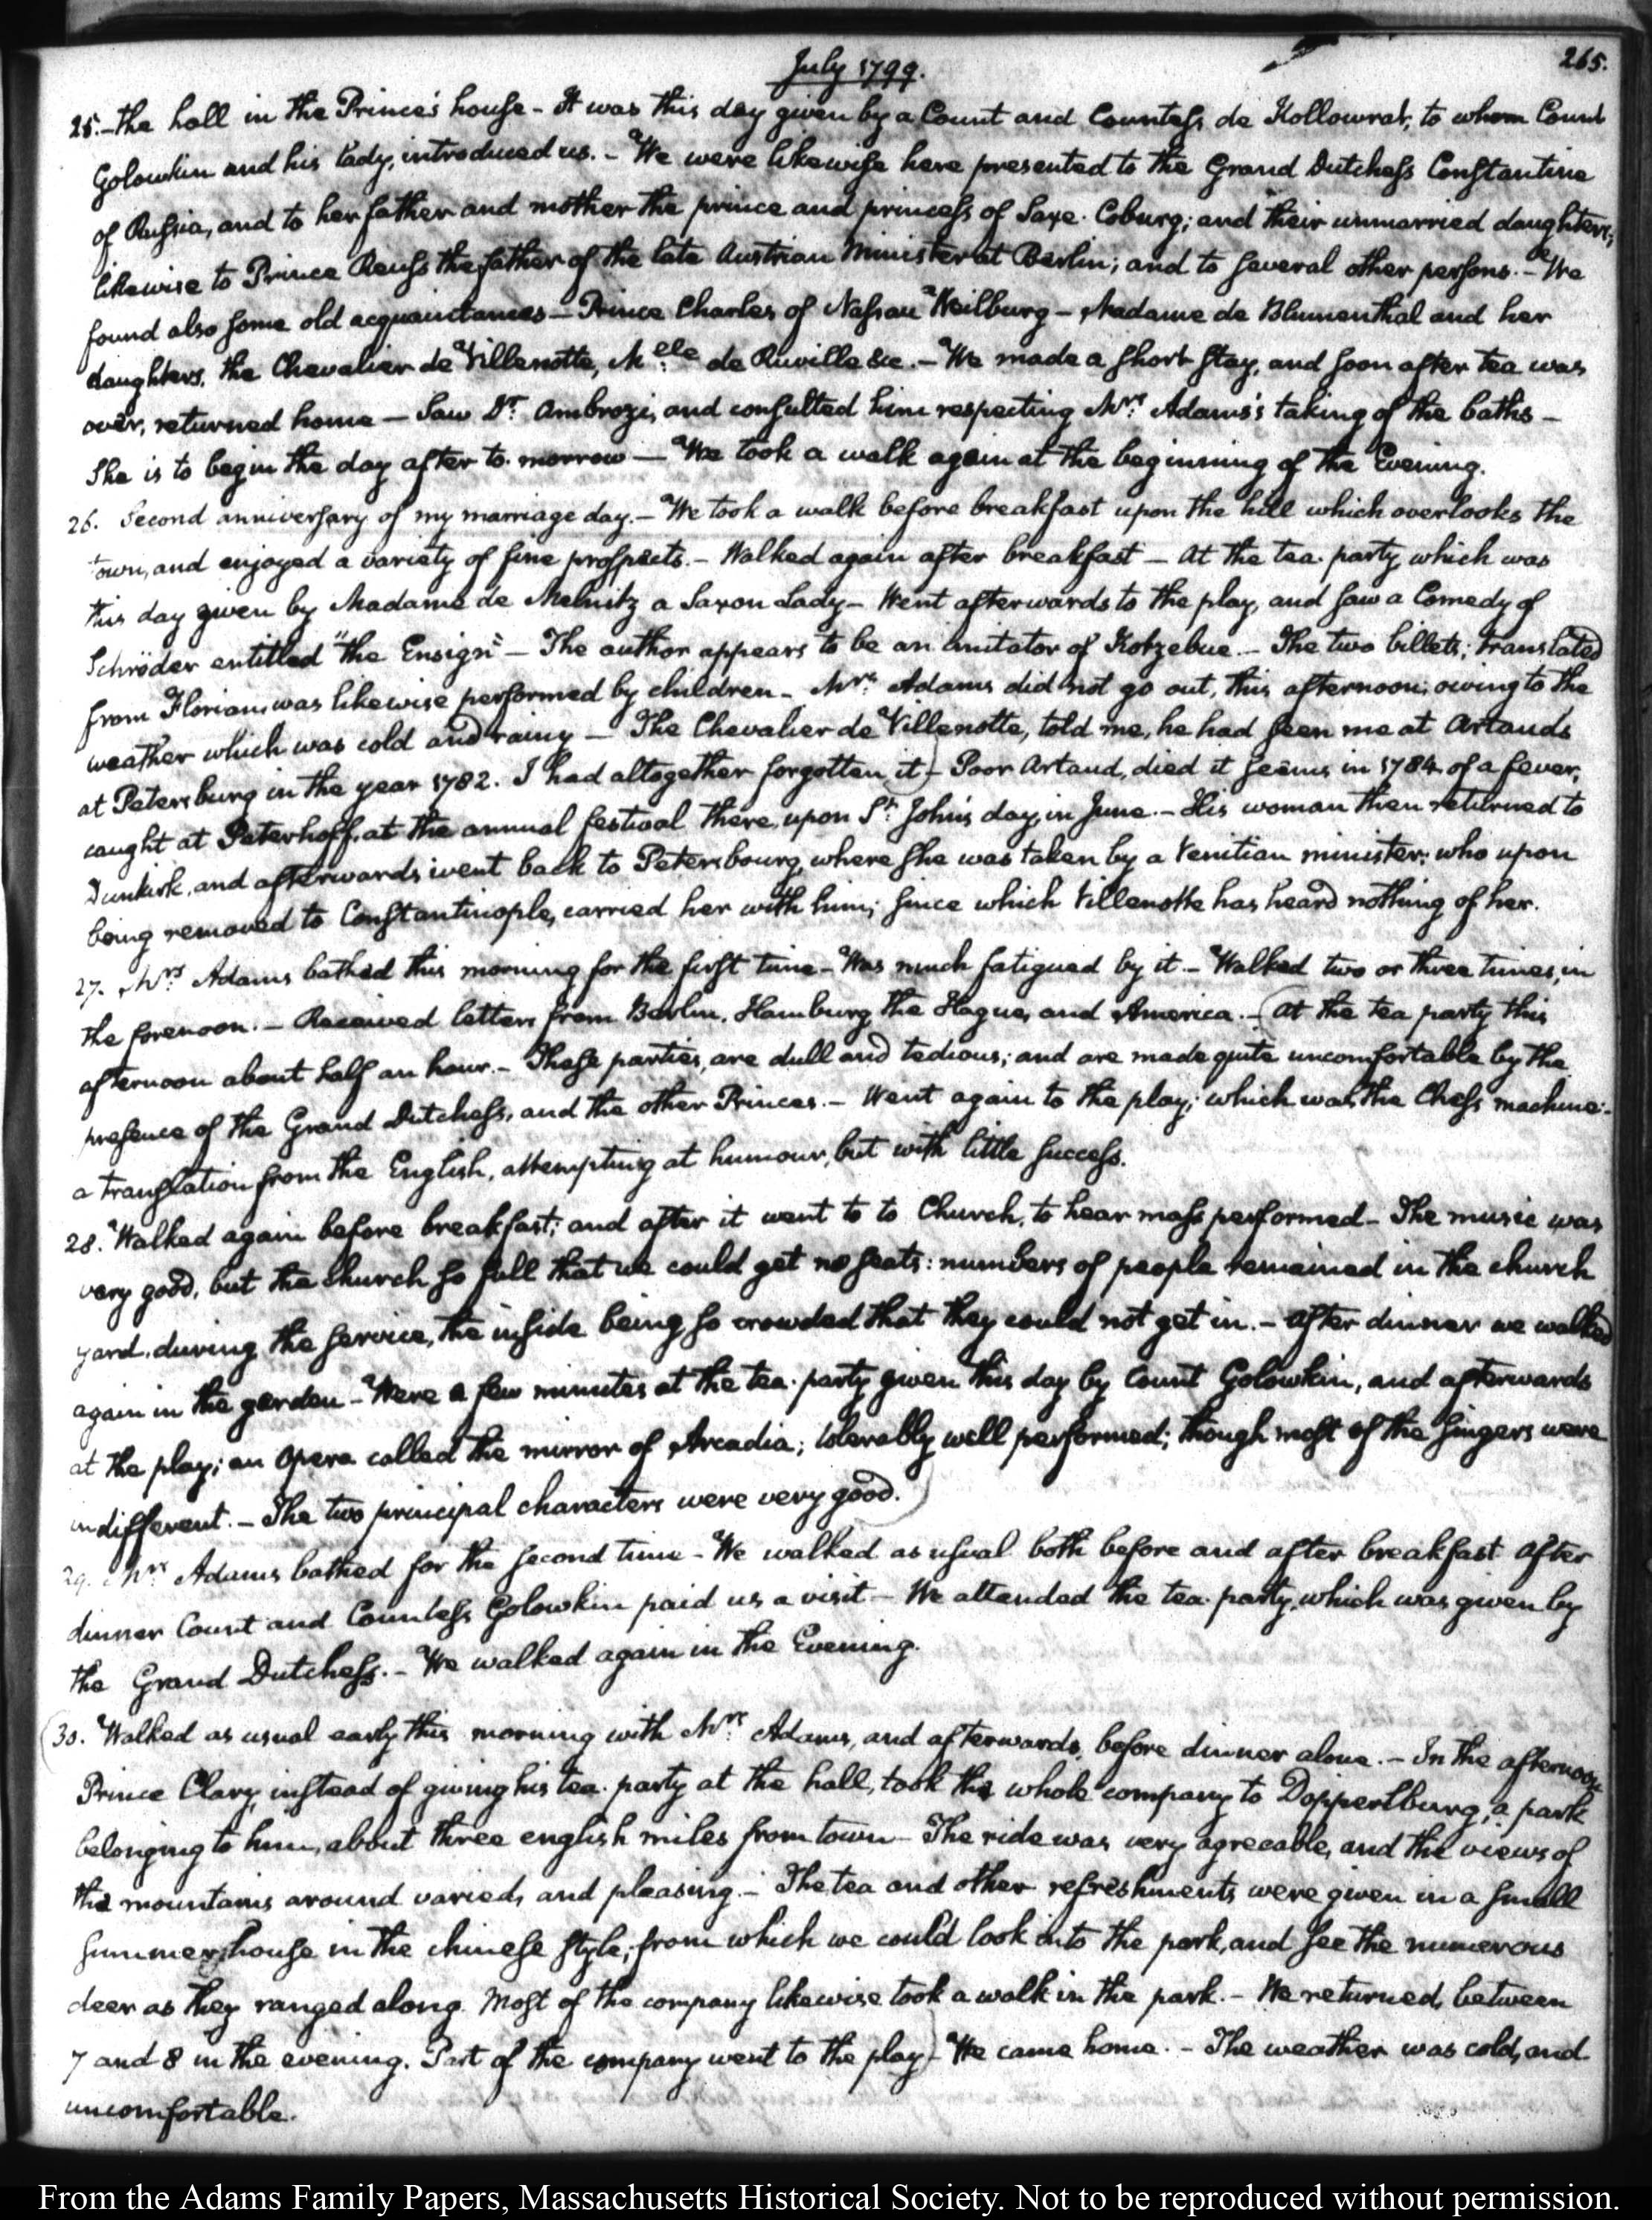 July 1799.
265.
25.-the hall in the Prince's house - It was this day given by a Count and Countess de Kollowrat, to whom Count
Golowkin and his Lady, introduced us. - We were likewise here presented to the Grand Dutchess Constantine
of Russia, and to her father and mother the prince and princess of Saxe-Coburg; and their unmarried daughters;
likewise to Prince Reuss the father of the late Austrian Minister at Berlin; and to several other persons. - We
found also some old acquaintances - Prince Charles of Nassau Weilburg - Madame de Blumenthal and her
daughters, the Chevalier de Villenotte, Melle de Ruville &c. - We made a short stay, and soon after tea was
over, returned home - Saw Dr Ambrozi, and consulted him respecting Mrs Adams's taking of the baths -
She is to begin the day after to-morrow - We took a walk again at the beginning of the Evening.
26. Second anniversary of my marriage day. - We took a walk before breakfast upon the hill which overlooks the
town, and enjoyed a variety of fine prospects. - Walked again after breakfast - At the tea-party which was
this day given by Madame de Melnitz a Saxon Lady - Went afterwards to the play, and saw a Comedy of
Schröder entitled "the Ensign" - The author appears to be an imitator of Kotzebue. - The two billets; translated
from Florian, was likewise performed by children - Mrs Adams did not go out, this afternoon; owing to the
weather which was cold and rainy - The Chevalier de Villenotte, told me, he had seen me at Artauds
at Petersburg in the year 1782. I had altogether forgotten it) - Poor Artaud, died it seems in 1784 of a fever,
caught at Peterhoff, at the annual festival there, upon St John's day, in June. - His woman then returned to
Dunkirk, and afterwards went back to Petersbourg, where she was taken by a Venitian minister; who upon
being removed to Constantinople, carried her with him; since which Villenotte has heard nothing of her.
27. Mrs Adams bathed this morning for the first time - Was much fatigued by it. - Walked two or three times, in
the forenoon. - Received letters from Berlin, Hamburg the Hague, and America. - (At the tea party this
afternoon about half an hour. - These parties, are dull and tedious; and are made quite uncomfortable by the
presence of the Grand Dutchess, and the other Princes. - Went again to the play; which was the Chess machine:
a translation from the English, attempting at humour, but with little success.
28. Walked again before breakfast; and after it went to to Church, to hear mass performed - The music was
very good, but the church so full that we could get no seats: numbers of people remained in the church
yard, during the service, the inside being so crowded that they could not get in. - After dinner we walked
again in the garden - Were a few minutes at the tea-party given this day by Count Golowkin, and afterwards
at the play; an Opera called the mirror of Arcadia; tolerably well performed; though most of the singers were
indifferent. - The two principal characters were very good.)
29. Mrs Adams bathed for the second time - We walked as usual both before and after breakfast After
dinner Count and Countess Golowkin paid us a visit - We attended the tea-party, which was given by
the Grand Dutchess. - We walked again in the Evening.
(30. Walked as usual early this morning with Mrs Adams, and afterwards, before dinner alone. - In the afternoon
Prince Clary, instead of giving his tea-party at the hall, took the whole company to Dopperlburg, a park
belonging to him, about three english miles from town - The ride was very agreeable, and the views of
the mountains around varied, and pleasing. - The tea and other refreshments were given in a small
summer-house in the chinese style; from which we could look into the park, and see the numerous
deer as they ranged along. Most of the company likewise took a walk in the park. - We returned, between
7 and 8 in the evening. Part of the company went to the play) - We came home. - The weather was cold, and
uncomfortable.
From the Adams Family Papers, Massachusetts Historical Society. Not to be reproduced without permission.